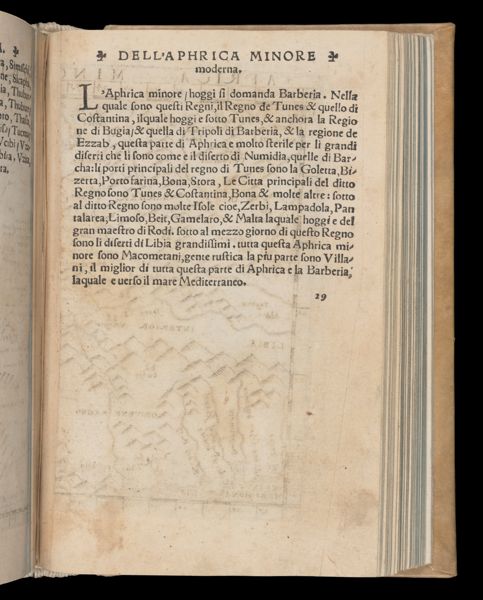 ✠ DELL'APHRICA MINORE ✠
moderna.
L'Aphrica minore, hoggi si domanda Barberia. Nella
quale sono questi Regni, il Regno de Tunes & quello di
Costantina, ilquale hoggi e sotto Tunes, & anchora la Regio
ne di Bugia, & quella di Tripoli di Barberia, & la regione de
Ezzab, questa parte di Aphrica e molto sterile per li grandi
diserti che li sono come e il diserto di Numidia, quelle di Bar-
cha: li porti principali del regno di Tunes sono la Goletta, Bi
zerta, Porto farina, Bona, Stora, Le Citta principali del ditto
Regno sono Tunes & Costantina, Bona & molte altre: sotto
al ditto Regno sono molte Isole cioe, Zerbi, Lampadola, Pan
talarea, Limoso, Beit, Gamelaro, & Malta laquale hoggi e del
gran maestro di Rodi. sotto al mezzo giorno di questo Regno
sono li diserti di Libia grandissimi. tutta questa Aphrica mi-
nore sono Macometani, gente rustica la piu parte sono Villa-
ni, il miglior di tutta questa parte di Aphrica e la Barberia,
laquale e verso il mare Mediterraneo.
29